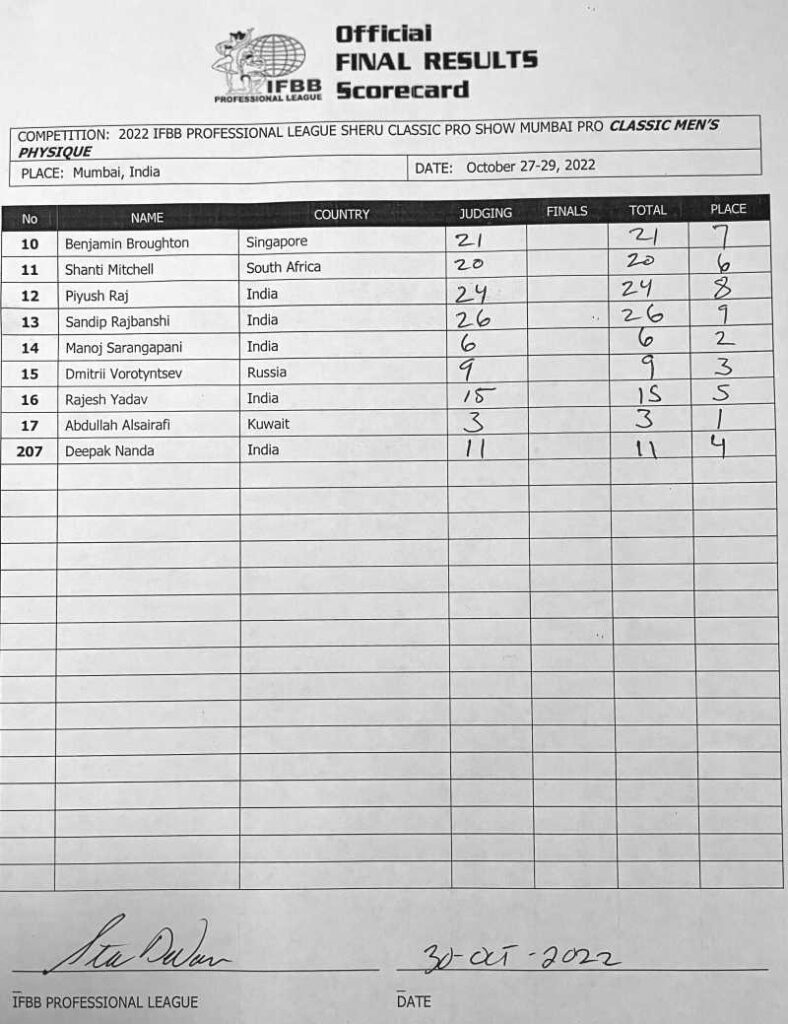 Official
FINAL RESULTS
Scorecard
IFBB
PROFESSIONAL LEAGUE
COMPETITION: 2022 IFBB PROFESSIONAL LEAGUE SHERU CLASSIC PRO SHOW MUMBAI PRO CLASSIC MEN'S
PHYSIQUE
PLACE: Mumbai, India DATE: October 27-29, 2022
No NAME COUNTRY JUDGING FINALS TOTAL PLACE
10 Benjamin Broughton Singapore 21 21 7
11 Shanti Mitchell South Africa 20 20 6
12 Piyush Raj India 24 24 8
13 Sandip Rajbanshi India 26 26 9
14 Manoj Sarangapani India 6 6 2
15 Dmitrii Vorotyntsev Russia 9 9 3
16 Rajesh Yadav India 15 15 5
17 Abdullah Alsairafi Kuwait 3 3 1
207 Deepak Nanda India 11 11 4
30-OCT-2022
IFBB PROFESSIONAL LEAGUE DATE